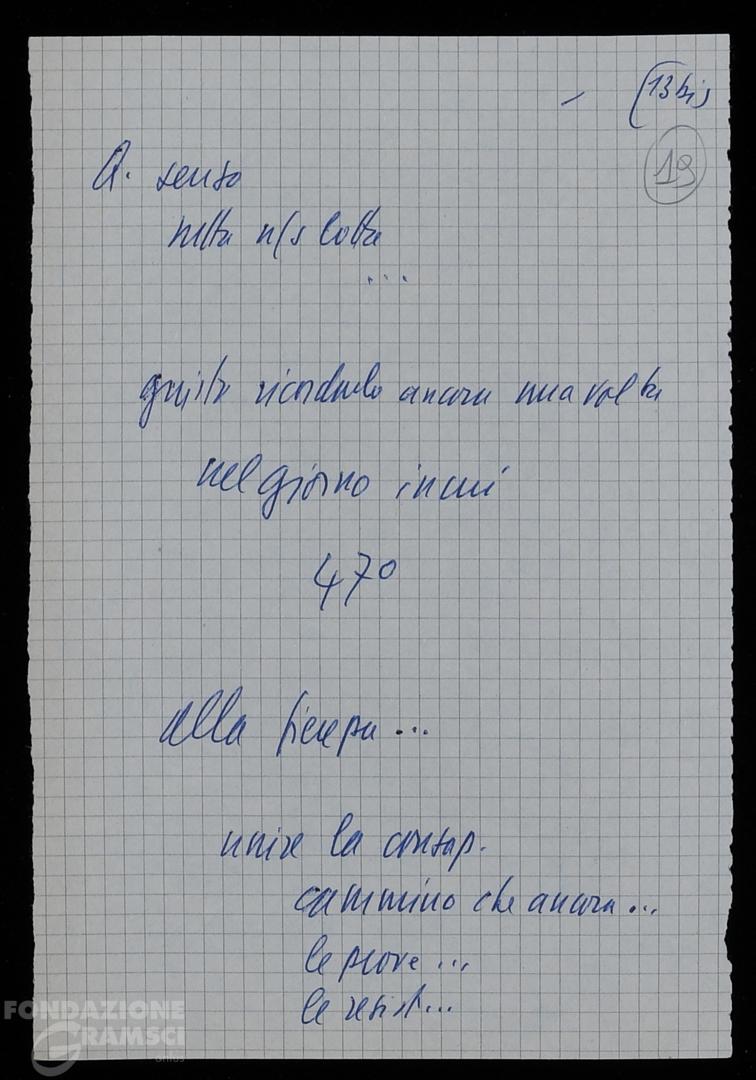 – (13 bis
19
Q. senso
nella n/s lotta
...
giusto ricordarlo ancora una volta
nel giorno in cui
47°
alla fierezza...
unire la consap.
cammino che ancora...
le prove...
le resist...
FONDAZIONE
GRAMSCI
onlus